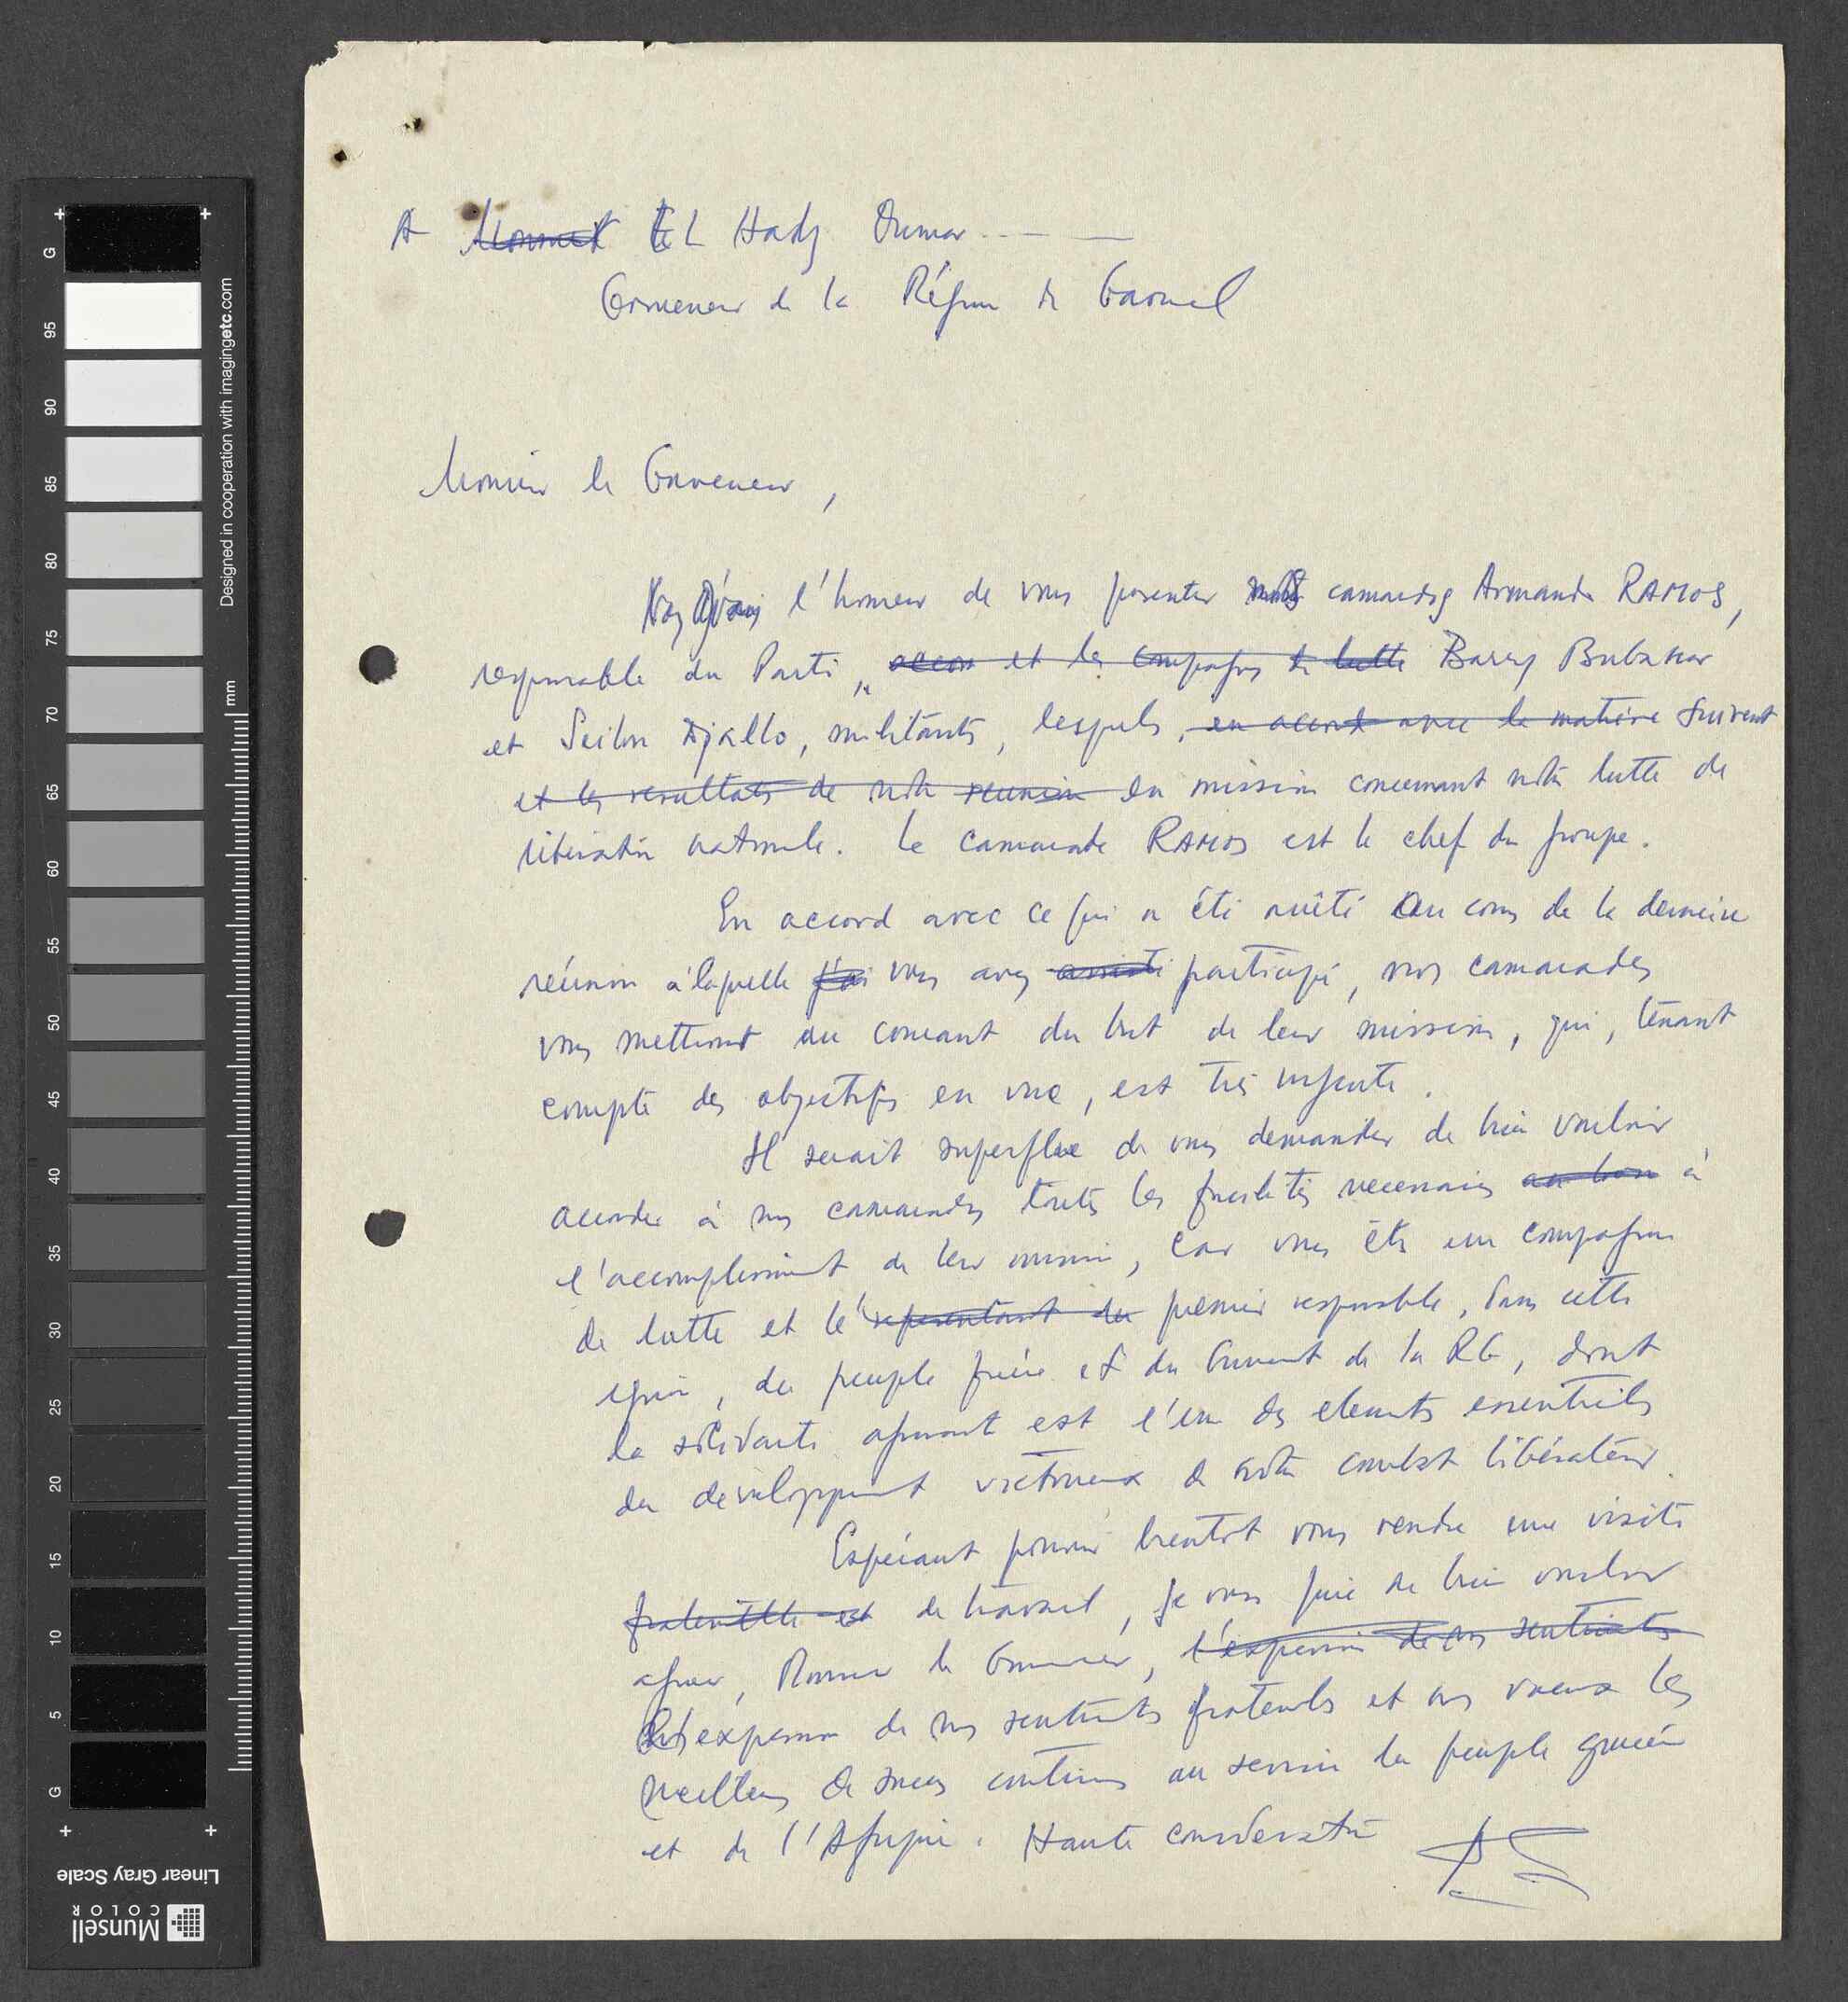 A Monsieur El Hadj Oumar
Gouverneur de la Région de Gaoual
Monsieur le Gouverneur,
l'honneur de vous presenter camarades Armando RAMOS,
responsable du Parti, et les compagnons de lutte Barry Bubakar
et Seilou Djallo, militants, lesquels, en accord avec la matière suivent
et les resultats de notre reunion en mission concernant notre lutte de
libération nationale. Le camarade RAMOS est le chef du groupe.
En accord avec ce qui a été arrêté au cours de la derniere
réunion à laquelle j'ai vous avez assisté participé, nos camarades
vous mettront au courant du but de leur mission, qui, tenant
compte des objectifs en vue, est très urgente.
Il serait superflue de vous demander de bien vouloir
accorder à nos camarades toutes les facilités necessaires au bon à
l'accomplissement de leur mission, car vous êtes un compagnon
de lutte et le representant du premier responsable, dans cette
region, du peuple frère et du Gouvernement de la RG, dont
la solidarité agissante est l'un des elements essentiels
du developpement victorieux de notre combat libérateur.
Espérant pouvoir bientôt vous rendre une visite
fraternelle et de travail, je vous prie de bien vouloir
agréer, Monsieur le Gouverneur, l'expression de nos sentiments
l'expression de nos sentiments fraternels et nos voeux les
meilleurs de succès continus au service du peuple guinéen
et de l'Afrique. Haute consideration